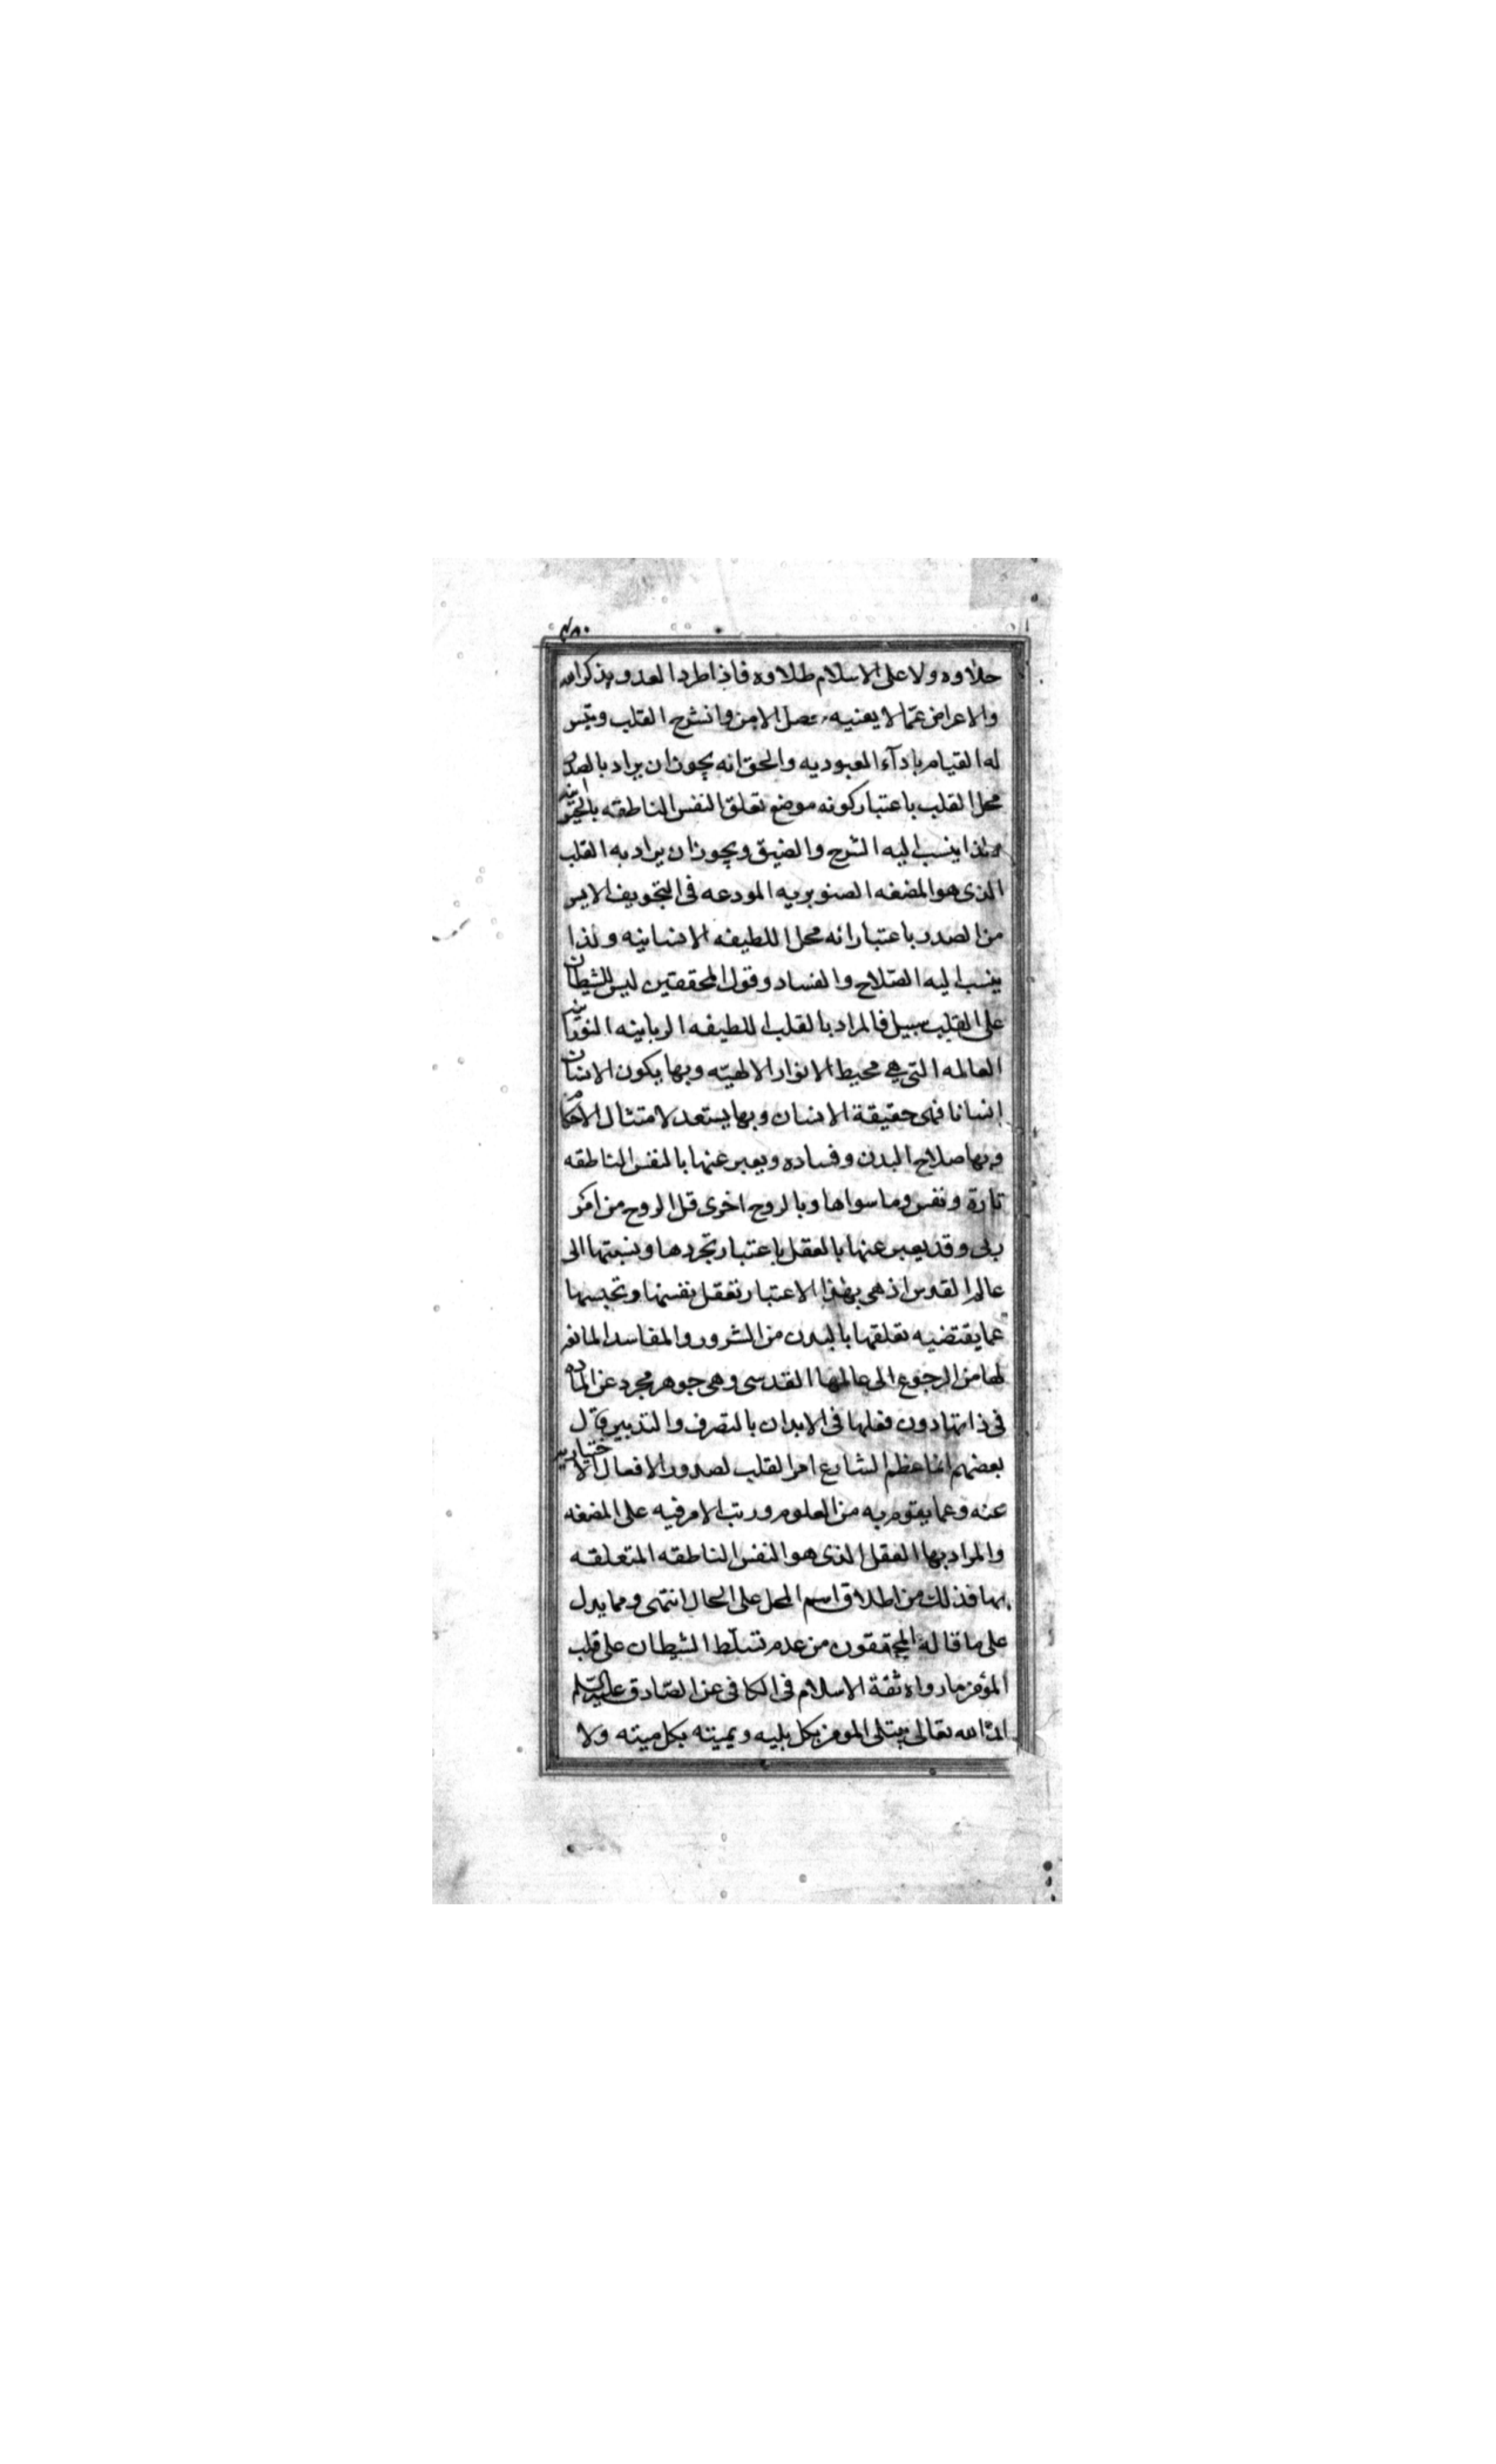 ٤٨٠
حلاوه ولا على الاسلام طلاوه فاذا طرد العدو بذكر الله
والاعراض عمّا لا يعنيه حصل الامن وانشرح القلب وتيسر
له القيام باداء العبوديه والحق انه يجوز ان يراد بالصدر
محل القلب باعتبار كونه موضع تعلق النفس الناطقه
ولذا ينسب اليه الشرح والضيق ويجوز ان يراد به القلب
الذى هو المضغه الصنوبريه المودعه فى التجويف الايسر
من الصدر باعتبار انه محل اللطيفه الانسانيه ولذا
ينسب اليه الصّلاح والفساد وقول المحققين ليس للشيطان
على القلب سبيل فالمراد بالقلب اللطيفه الربانيه النورانيه
العالمه التى هى محيط الانوار الالهيّه وبها يكون الانسان
انسانا فهى حقيقة الانسان وبها يستعد لامتثال الاحكام
وبها صلاح البدن وفساده ويعبر عنها بالنفس الناطقه
تارة ونفس وما سواها وبالروح اخرى قل الروح من امر
ربى وقد يعبر عنها بالعقل باعتبار تجردها ونسبتها الى
عالم القدس اذ هى بهذا الاعتبار تعقل نفسها وتحبسها
عما يقتضيه تعلقها بالبدن من الشرور والمفاسد المانعه
لها من الرجوع الى عالمها القدسى وهى جوهر مجرد عن الماده
فى ذاتها دون فعلها فى الابدان بالتصرف والتدبير وقال
بعضهم انما عظم الشارع امر القلب لصدور الافعال الاختياريه
عنه وعما يقوم به من العلوم ورتب الامر فيه على المضغه
والمراد بها العقل الذى هو النفس الناطقه المتعلقه
بها فذلك من اطلاق اسم المحل على الحال انتهى ومما يدل
على ما قاله المحققون من عدم تسلّط الشيطان على قلب
المؤمن ما رواه ثقة الاسلام فى الكافى عن الصّادق عليه السّلم
ان الله تعالى يبتلى المومن بكل بليه ويميته بكل ميته ولا